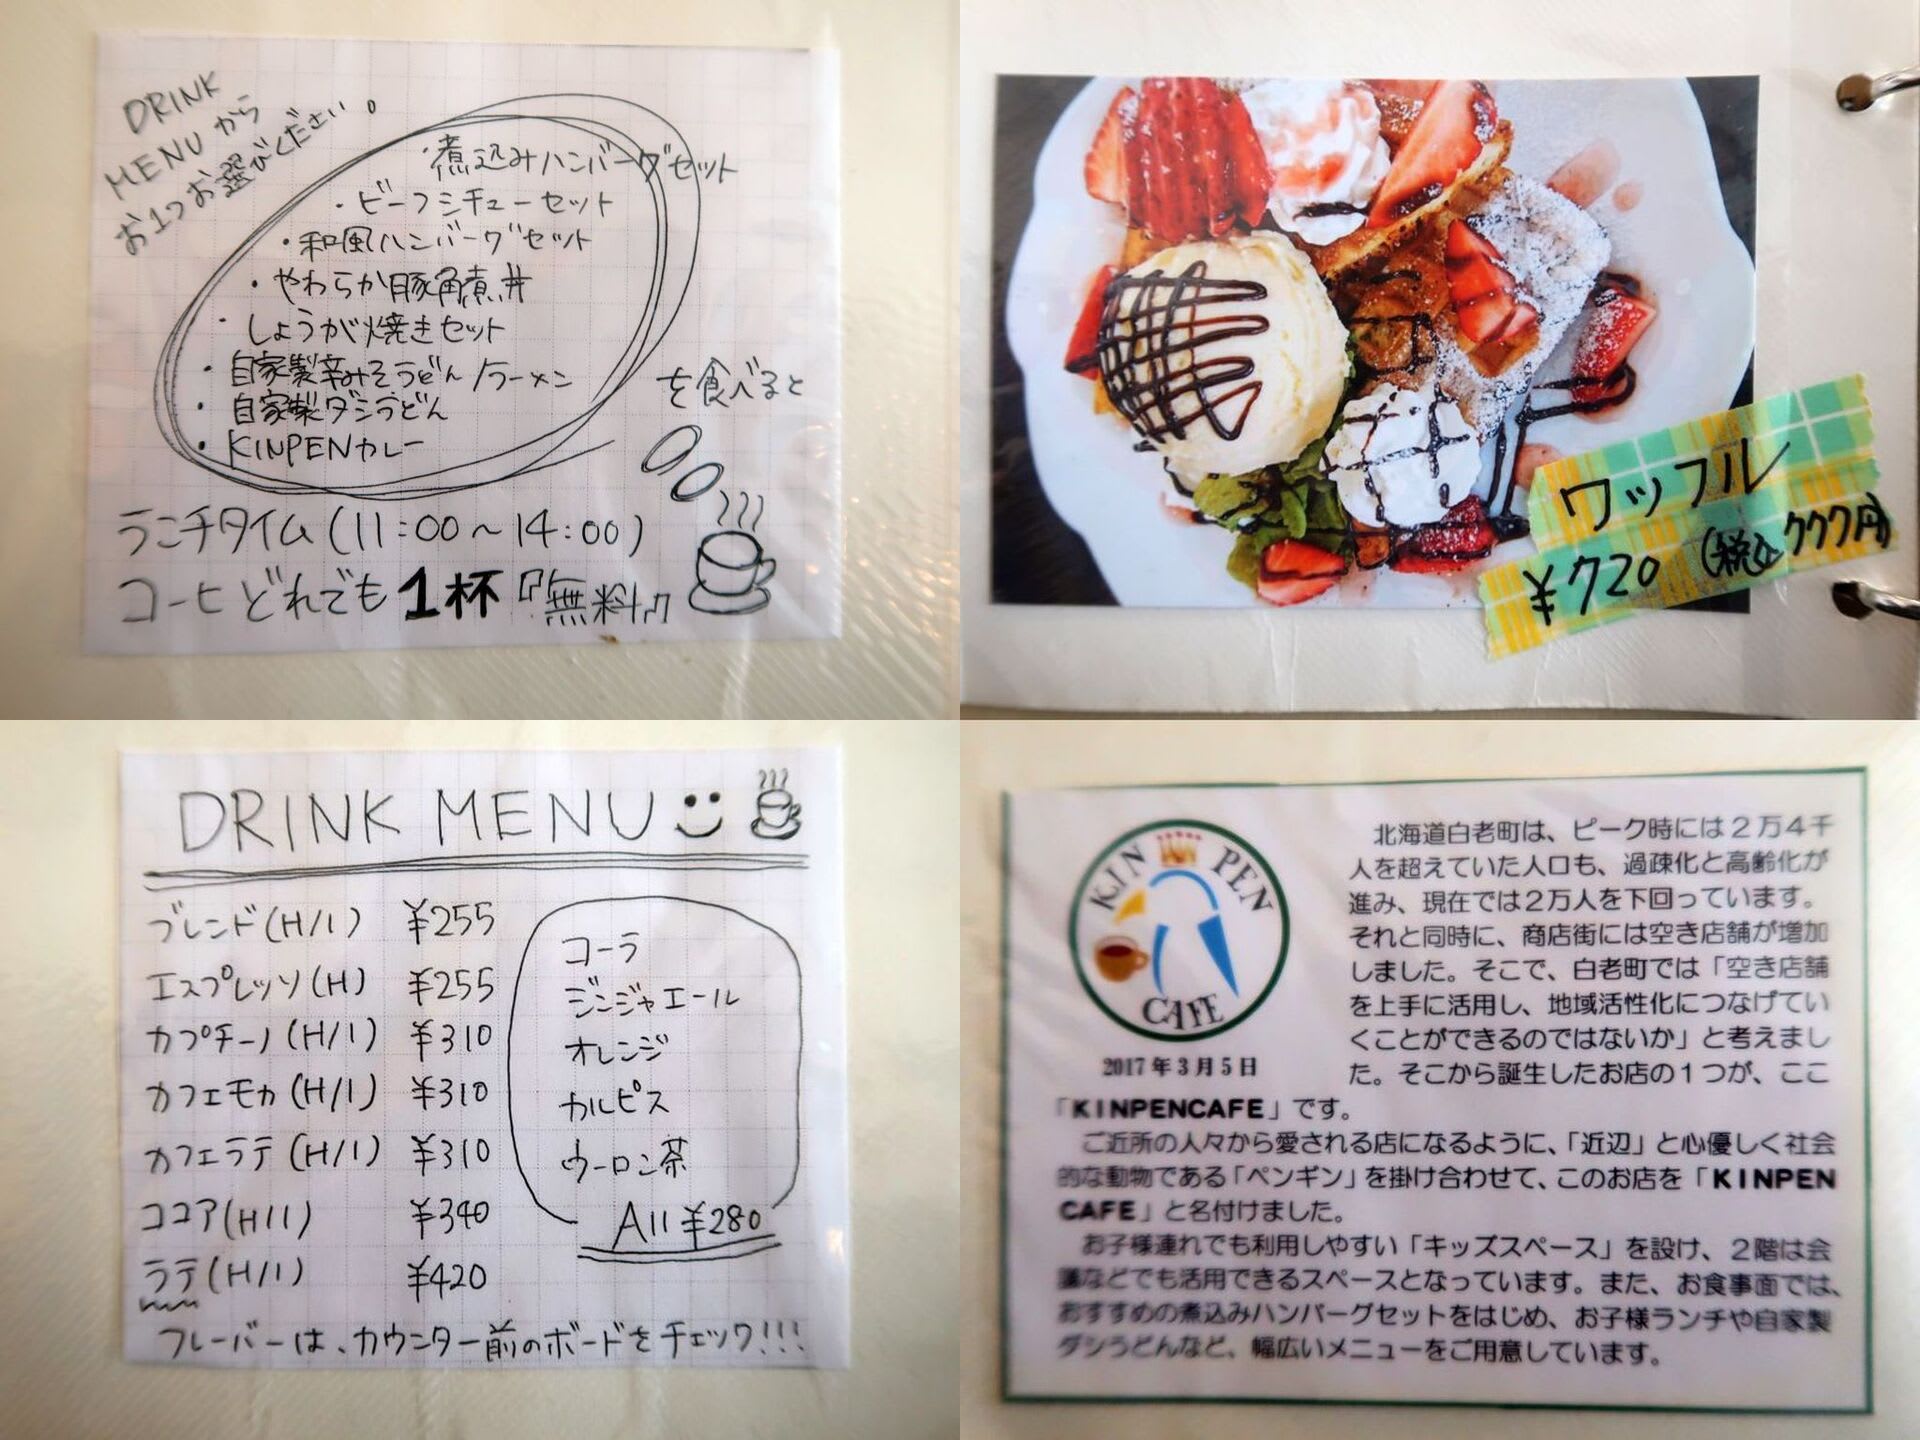 DRINK
MENUから
お1つお選びください。
・煮込みハンバーグセット
・ビーフシチューセット
・和風ハンバーグセット
・やわらか豚角煮丼
・しょうが焼きセット
・自家製辛みそうどん/ラーメン
・自家製ダシうどん
・KINPENカレー
を食べると
ランチタイム(11:00~14:00)
コーヒどれでも1杯『無料』
ワッフル
¥720(税込777円)
DRINK MENU
ブレンド(H/I) ¥255
エスプレッソ(H) ¥255
カプチーノ(H/I) ¥310
カフェモカ(H/I) ¥310
カフェラテ(H/I) ¥310
ココア(H/I) ¥340
ラテ(H/I) ¥420
コーラ
ジンジャエール
オレンジ
カルピス
ウーロン茶
All ¥280
フレーバーは、カウンター前のボードをチェック!!!
KINPEN
CAFE
2017年3月5日
北海道白老町は、ピーク時には2万4千
人を超えていた人口も、過疎化と高齢化が
進み、現在では2万人を下回っています。
それと同時に、商店街には空き店舗が増加
しました。そこで、白老町では「空き店舗
を上手に活用し、地域活性化につなげてい
くことができるのではないか」と考えまし
た。そこから誕生したお店の1つが、ここ
「KINPENCAFE」です。
ご近所の人々から愛される店になるように、「近辺」と心優しく社会
的な動物である「ペンギン」を掛け合わせて、このお店を「KINPEN
CAFE」と名付けました。
お子様連れでも利用しやすい「キッズスペース」を設け、2階は会
議などでも活用できるスペースとなっています。また、お食事面では、
おすすめの煮込みハンバーグセットをはじめ、お子様ランチや自家製
ダシうどんなど、幅広いメニューをご用意しています。